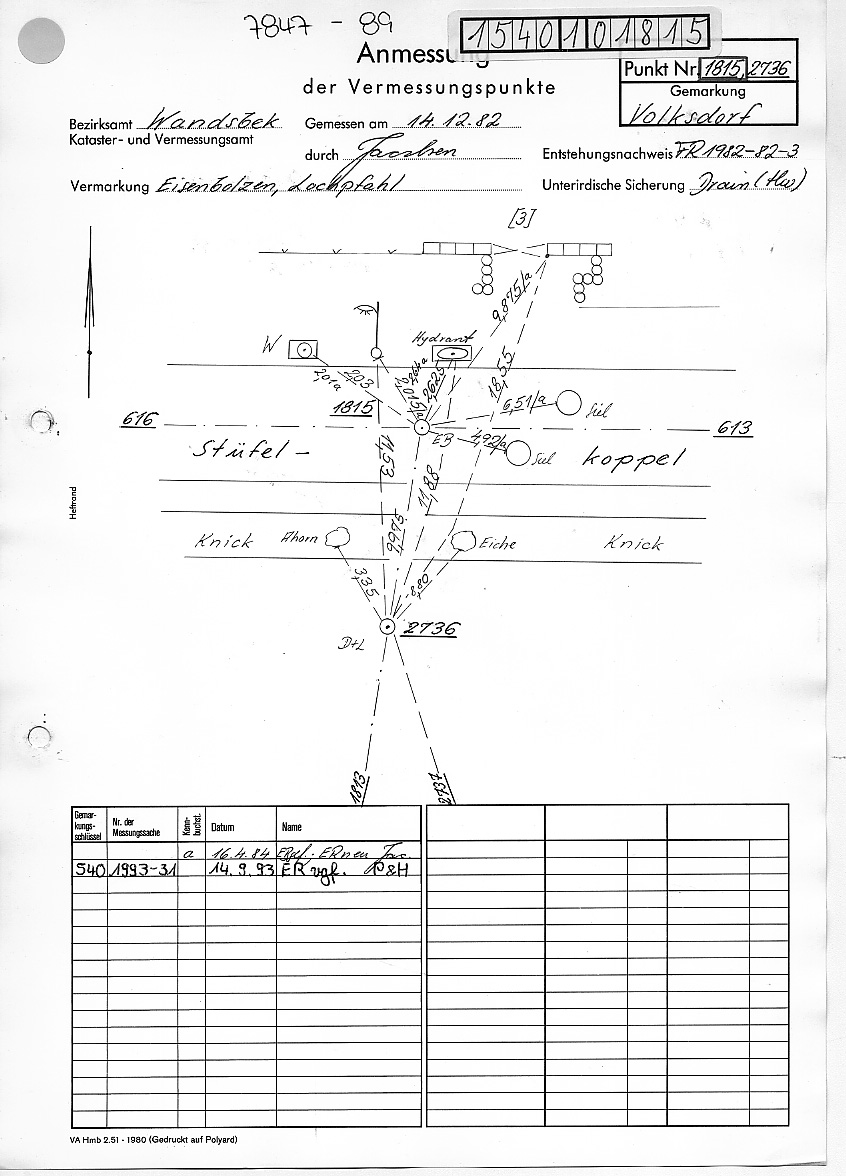 7847 - 89
1540101815
Anmessung
der Vermessungspunkte
Punkt Nr. 1815, 2736
Gemarkung
Volksdorf
Bezirksamt Wandsbek
Kataster- und Vermessungsamt
Gemessen am 14.12.82
durch Jacobsen
Entstehungsnachweis FR 1982-82-3
Vermarkung Eisenbolzen, Lochpfahl
Unterirdische Sicherung Drain (Hw)
[3]
9,875/a
W
Hydrant
2,01a
2,03
2,015/a
2,625
18,55
1815
6,51/a
Siel
616
613
EB
4,92/a
Siel
Stüfel-
koppel
11,53
11,88
9,975
Heftrand
Knick
Ahorn
Eiche
Knick
3,35
8,80
D+L
2736
1813
2737
Gemar-
kungs-
schlüssel
Nr. der
Messungssache
Kenn-
buchst.
Datum
Name
a 16.4.84 ERneu Jac.
540 1993-31 14.9.93 ER vgl. P&H
VA Hmb 2.51 - 1980 (Gedruckt auf Polyard)